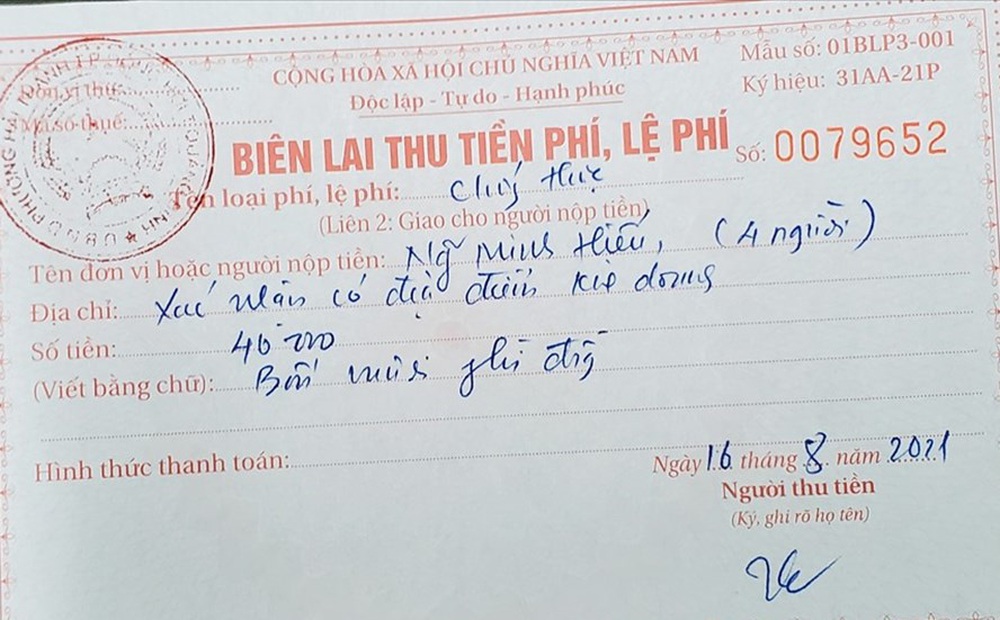 CỘNG HÒA XÃ HỘI CHỦ NGHĨA VIỆT NAM
Độc lập - Tự do - Hạnh phúc
Mẫu số: 01BLP3-001
Ký hiệu: 31AA-21P
Đơn vị thu:
Mã số thuế:
BIÊN LAI THU TIỀN PHÍ, LỆ PHÍ
Số: 0079652
Tên loại phí, lệ phí: Chứng thực
(Liên 2: Giao cho người nộp tiền)
Tên đơn vị hoặc người nộp tiền: Ng Minh Hiếu, (4 người)
Địa chỉ: Xác nhận có đặc điểm
Số tiền: 40 000
(Viết bằng chữ): Bốn mươi ghì đg
Hình thức thanh toán:
Ngày 16 tháng 8 năm 2021
Người thu tiền
(Ký, ghi rõ họ tên)